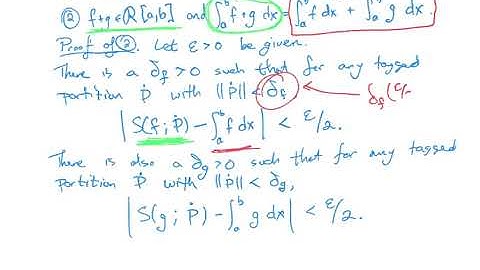 ② f+g ∈ R[a,b] and ∫_a^b f+g dx = ∫_a^b f dx + ∫_a^b g dx.
Proof of ②. Let ε>0 be given.
There is a δ_f > 0 such that for any tagged
partition Ṗ with ||Ṗ|| < δ_f
δ_f(ε/2
| S(f; Ṗ) − ∫_a^b f dx | < ε/2.
There is also a δ_g > 0 such that for any tagged
partition Ṗ with ||Ṗ|| < δ_g,
| S(g; Ṗ) − ∫_a^b g dx | < ε/2.